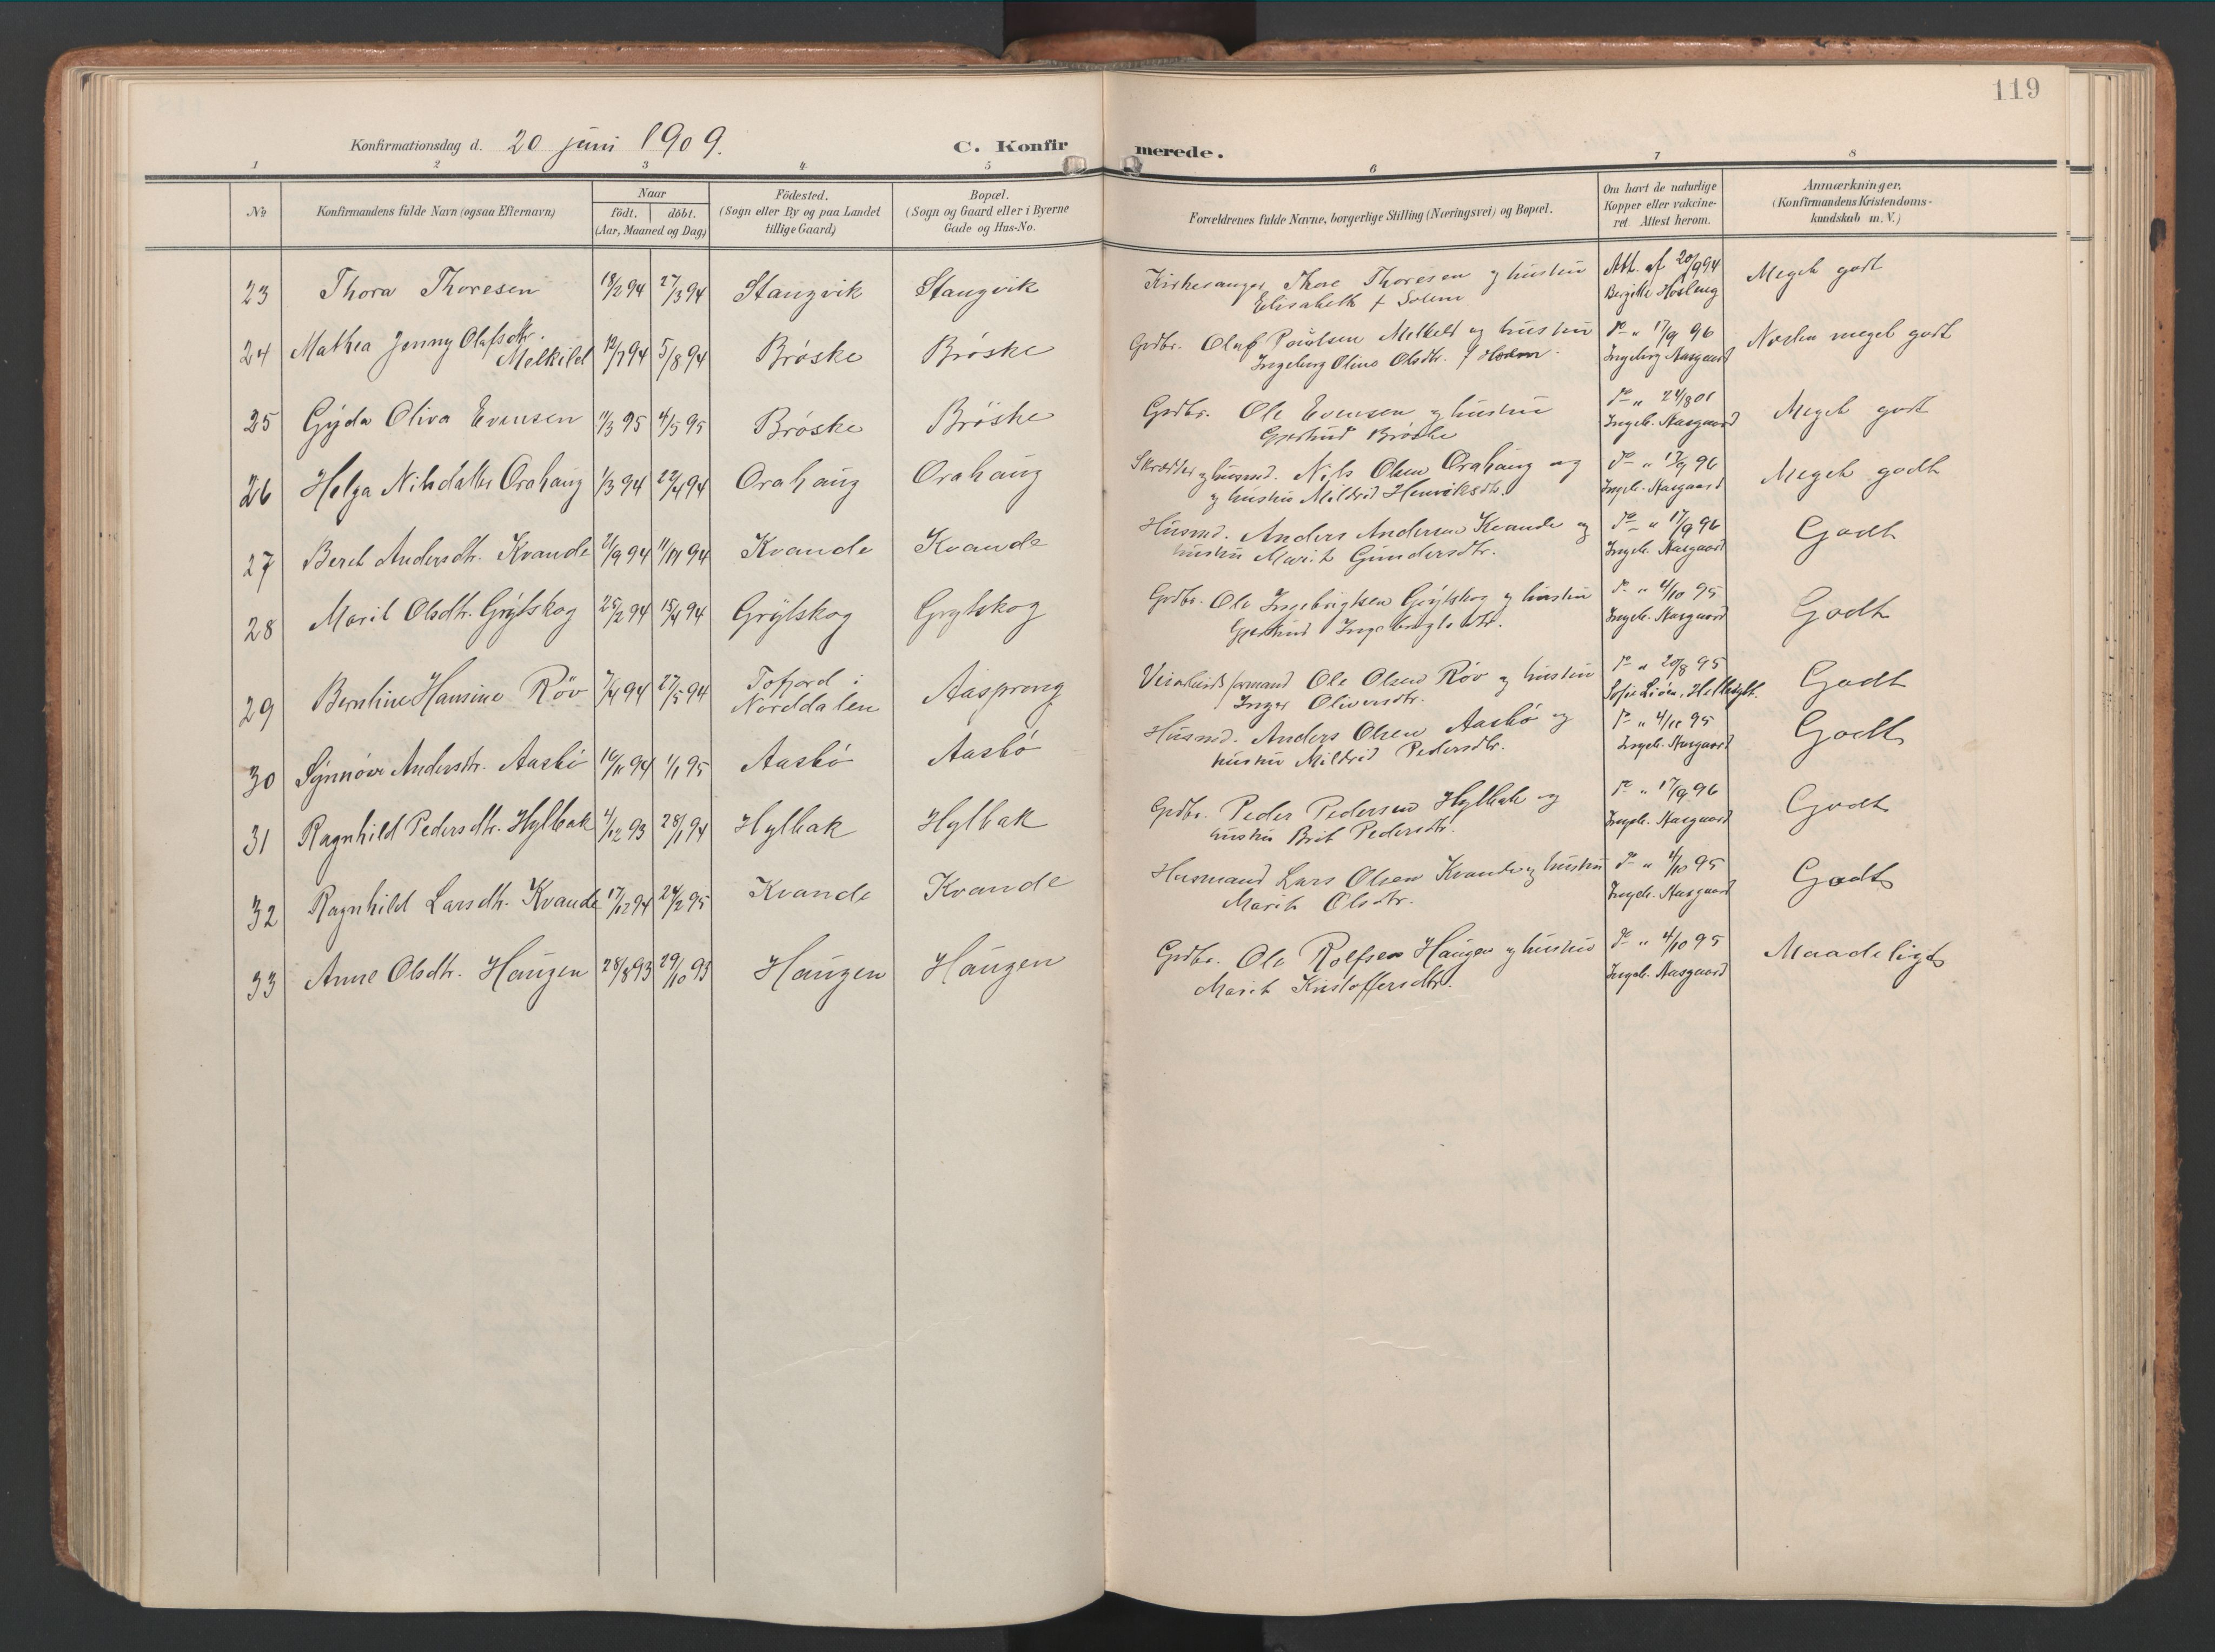 119
Konfirmationsdag d. 20 juni 1909.
C. Konfirmerede.
1 2 3 4 5 6 7 8
No
Konfirmandens fulde Navn (ogsaa Efternavn)
Naar
födt. döbt.
(Aar, Maaned og Dag)
Födested.
(Sogn eller By og paa Landet
tillige Gaard)
Bopæl.
(Sogn og Gaard eller i Byerne
Gade og Hus-No.
Forældrenes fulde Navne, borgerlige Stilling (Næringsvei) og Bopæl.
Om havt de naturlige
Kopper eller vakcine-
ret. Attest herom.
Anmærkninger.
(Konfirmandens Kristendoms-
kundskab m. V.)
23 Thora Thoresen 18/2 94 27/3 94 Stangvik Stangvik Kirkesanger Thore Thoresen og hustru Att. af 20/9 94 Meget godt
Elisabeth f. Solem Bergitte
24 Mathea Jenny Olafsdtr. 5/8 94 Brøske Brøske Grdbr. Olaf Poulsen Melkild og hustru do " 17/9 96 Næsten meget godt
Melkild Ingeborg Olina Olsdtr. Ingeborg Aasgaard
25 Gyda Oliva Evensen 11/3 95 4/5 95 Brøske Brøske Grdbr. Ole Evensen og hustru do " 24/8 01 Meget godt
Gjertrud Brøske Ingeb. Aasgaard
26 Helga Nilsdatter Orahaug 1/3 94 22/4 94 Orahaug Orahaug Skrædder og husmd. Nils Olsen Orahaug og do " 17/9 96 Meget godt
og hustru Mildrid Henriksdtr. Ingeb. Aasgaard
27 Beret Andersdtr. Kvande 21/9 94 11/11 94 Kvande Kvande Husmd. Anders Andersen Kvande og do " 17/9 96 Godt
hustru Marit Gundersdtr. Ingeb. Aasgaard
28 Marit Olsdtr. Grytskog 25/2 94 15/4 94 Grytskog Grytskog Grdbr. Ole Ingebrigtsen Grytskog og hustru do " 4/10 95 Godt
Gjertrud Ingebrigtsdtr. Ingeb. Aasgaard
29 Berntine Hansine Röv 7/4 94 27/5 94 Tofjord i Aasprong Ole Olsen Röv og hustru do " 20/8 95 Godt
Norddalen Inger Oliversdtr. Sofie Liöen, Hellesylt.
30 Synnöve Andersdtr. Aasbö 1/1 95 Aasbö Aasbö Husmd. Anders Olsen Aasbö og Godt
hustru Mildrid Pedersdtr. Ingeb. Aasgaard
31 Ragnhild Pedersdtr. Hylbak 4/12 93 28/1 94 Hylbak Hylbak Grdbr. Peder Pedersen Hylbak og do " 17/9 96 Godt
hustru Brit Pedersdtr. Ingeb. Aasgaard
32 Ragnhild Larsdtr. Kvande 17/12 94 24/2 95 Kvande Kvande Husmand Lars Olsen Kvande og hustru do " 4/10 95 Godt
Marit Olsdtr. Ingeb. Aasgaard
33 Anne Olsdtr. Haugen 28/8 93 29/10 93 Haugen Haugen Grdbr. Ole Rolfsen Haugen og hustru do " 4/10 95 Maadeligt
Marit Kristoffersdtr. Ingeb. Aasgaard